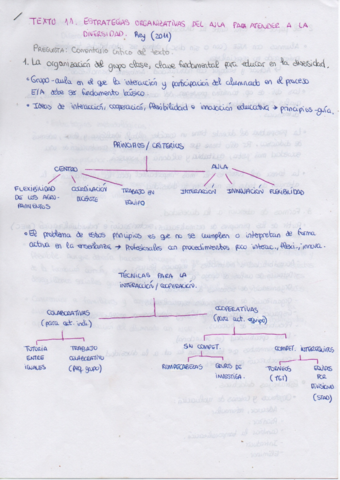 TEXTO 11. ESTRATEGIAS ORGANIZATIVAS DEL AULA PARA ATENDER A LA
DIVERSIDAD. (2011)
Pregunta: Comentario crítico del texto
1. La organización del grupo clase, clave fundamental para educar en la diversidad.
• Grupo-aula en el que la interacción y participación del alumnado en el proceso
E/A debe ser fundamento básico.
• Ideas de interacción, cooperación, flexibilidad e innovación educativa → principios guía.
PRINCIPIOS / CRITERIOS
CENTRO AULA
FLEXIBILIDAD COORDINACIÓN TRABAJO EN INTERACCIÓN FLEXIBILIDAD
DE LOS AGRU- DOCENTE EQUIPO
PAMIENTOS
• El problema de estos principios es que no se cumplen o interpretan de forma
activa en la enseñanza → Profesionales con procedimientos poco interac., flexi., innova.
TÉCNICAS PARA LA
INTERACCIÓN / COOPERACIÓN.
COLABORATIVAS COOPERATIVAS
(para act. indi.) (para act. equipo)
TUTORÍA TRABAJO SIN COMPET. COMPET. INTERGRUPOS
ENTRE COLABORATIVO
IGUALES (peq. grupo) ROMPECABEZAS GRUPO DE TORNEOS EQUIPOS
INVESTIGA. (TGT) POR
DIVISIONES
(STAD)